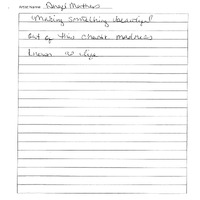 Artist Name Daryl Matthews
"Making something beautiful
out of this chaotic madness
known as life